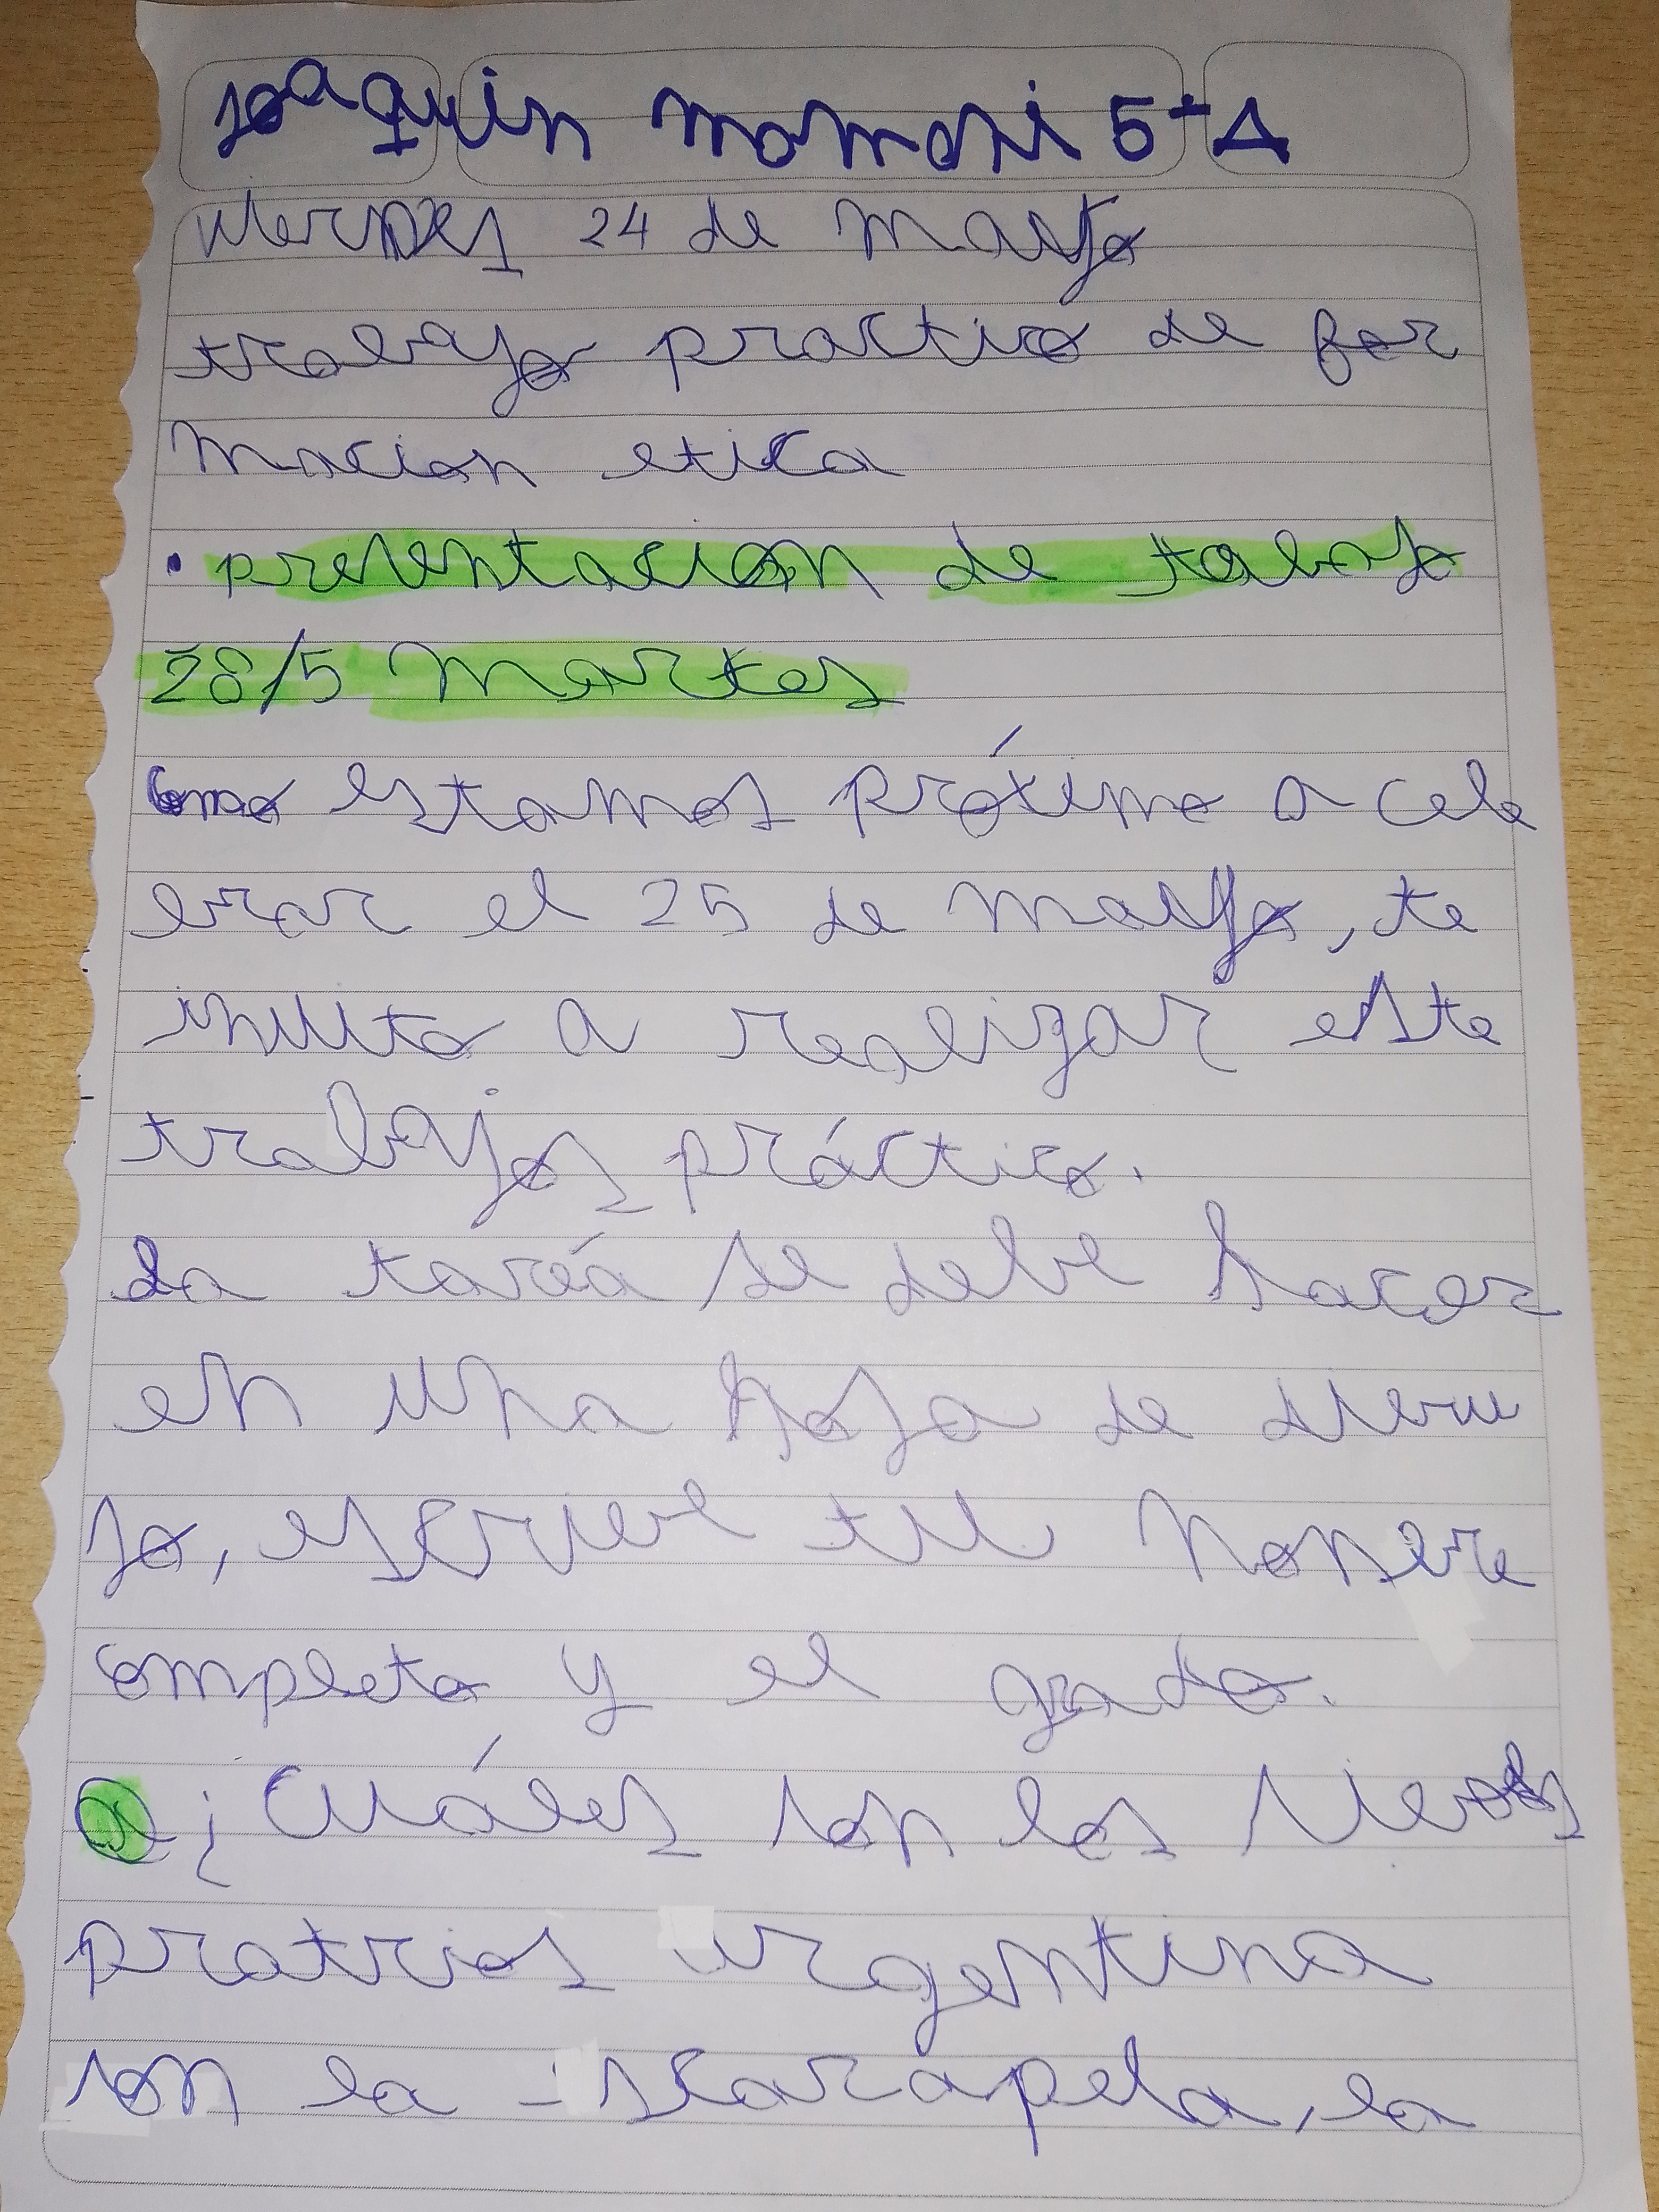 Joaquin mamani 5 A
viernes 24 de mayo
trabajo practico de for
macion etica
• presentacion de trabajo
28/5 martes
como estamos próximo a cele
brar el 25 de mayo, te
invito a realizar este
trabajos práctico.
La taréa se debe hacer
en una hoja de dibu
jo, escribe tu nombre
completo y el grado.
a ¿Cuáles son los
pratrios argentina
son la escarapela, la